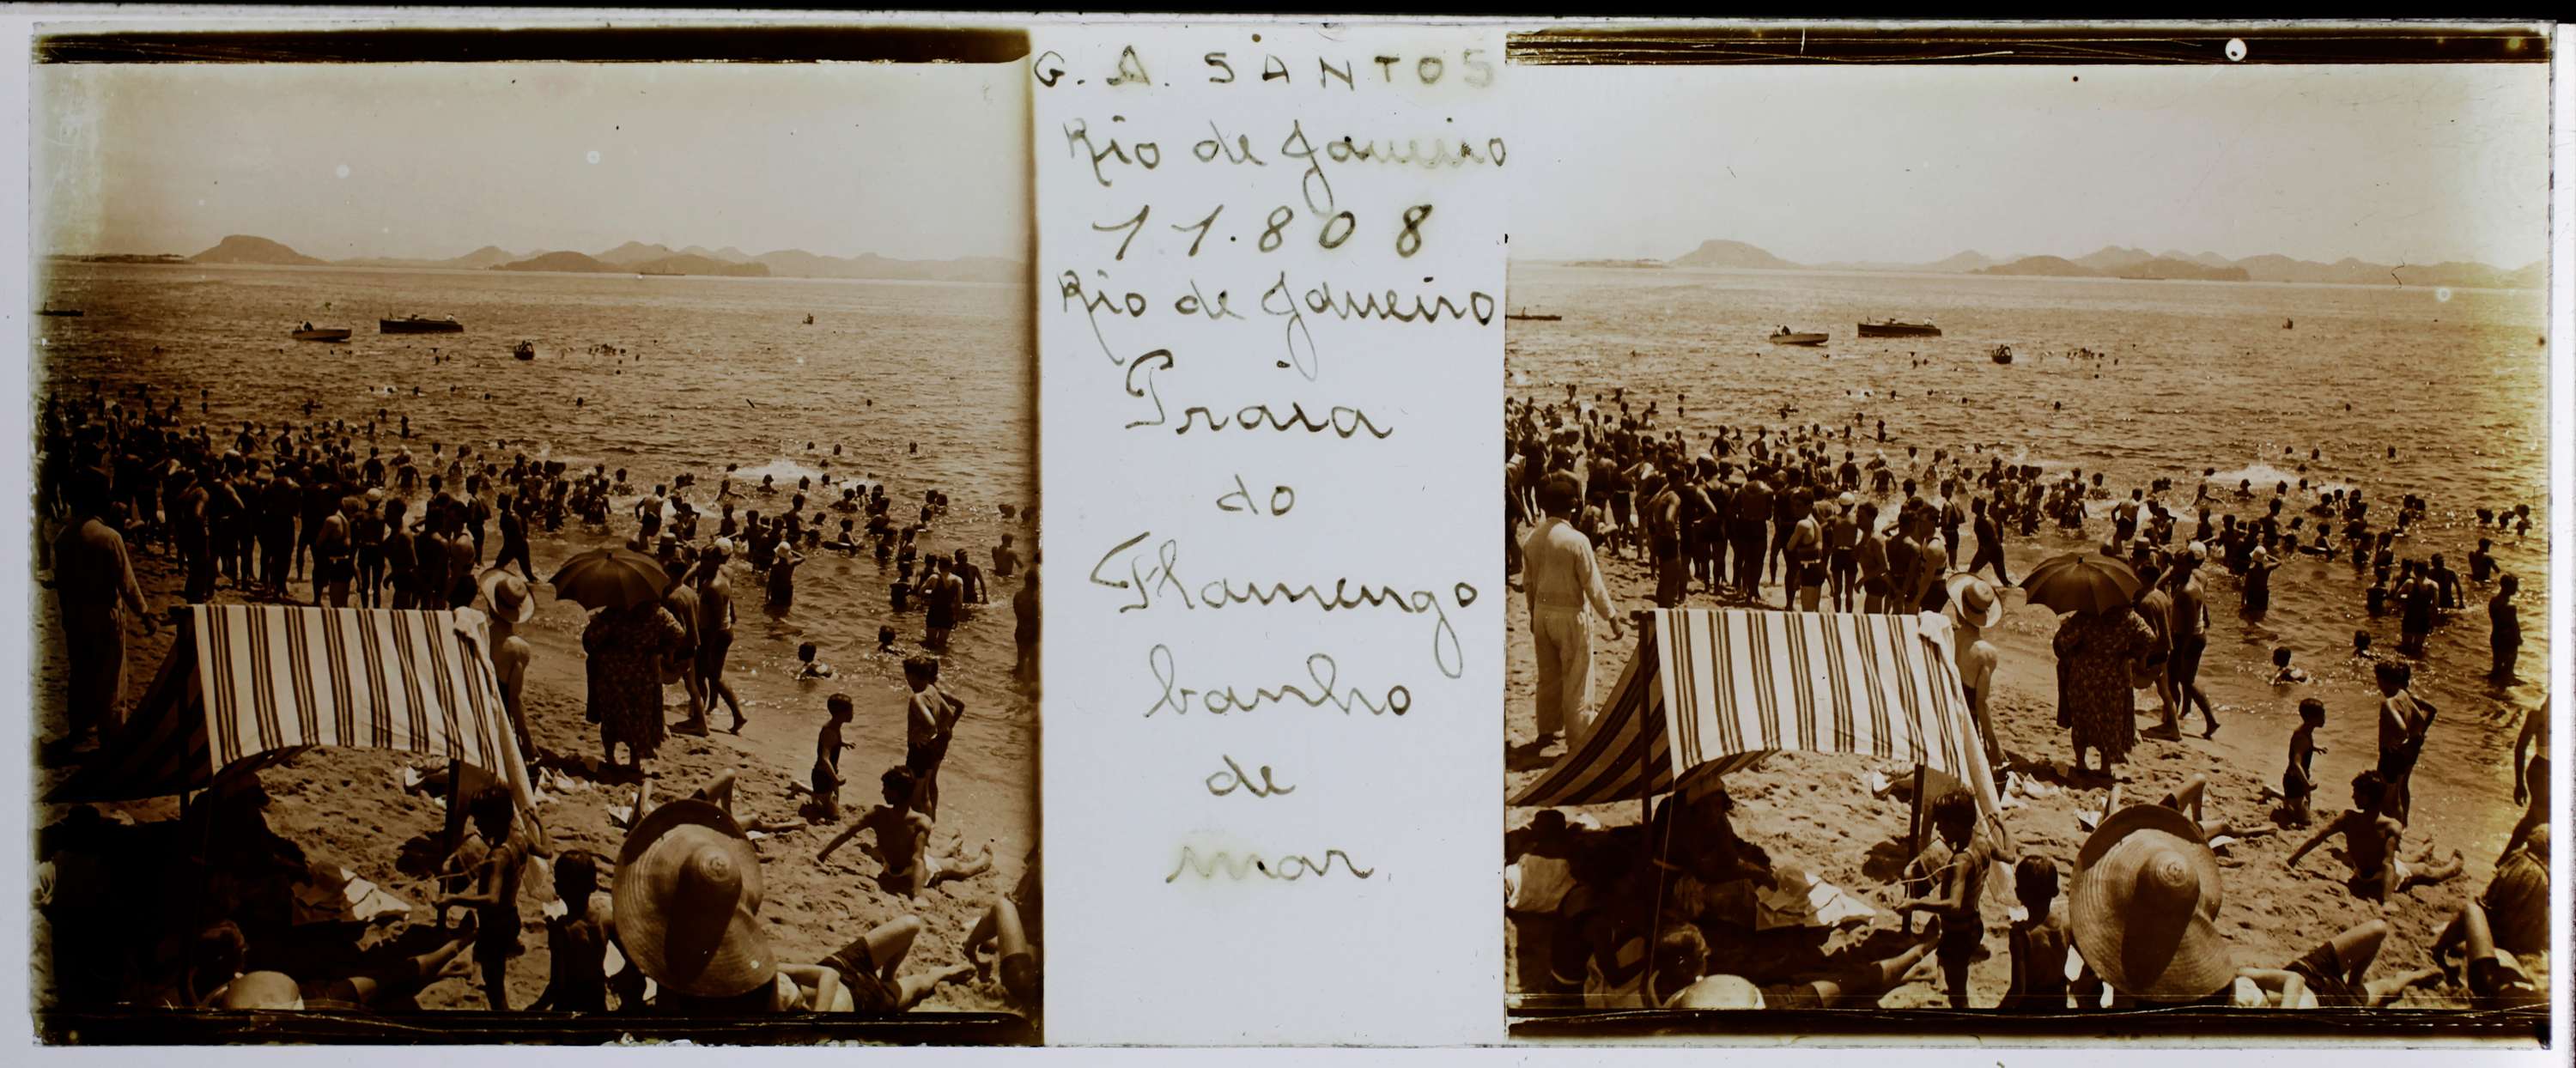 G. A. SANTOS
Rio de Janeiro
11.808
Rio de Janeiro
Praia
do
Flamengo
banho
de
mar